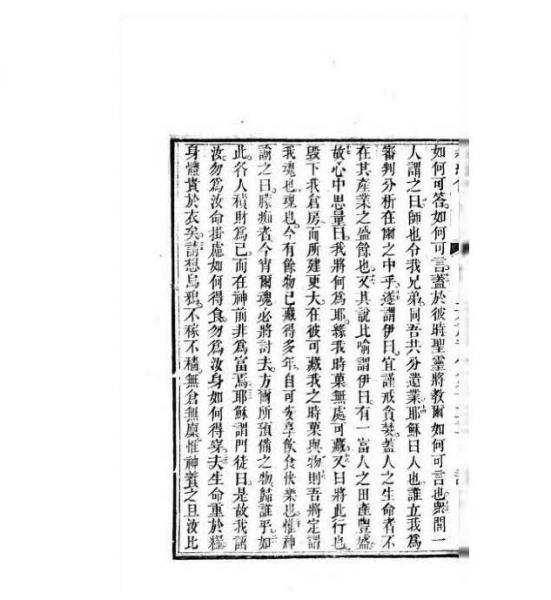 如何可答如何可言蓋於彼時聖靈將教爾如何可言也眾間一
人謂之曰師也令我兄弟同吾共分遺業耶穌曰人也誰立我為
審判分析在爾之中乎遂謂伊曰宜謹戒貪婪蓋人之生命者不
在其產業之盛餘也又具說比喻謂伊曰有一富人之田產豐盛
故心中思量曰我將何為耶緣我時菓無處可藏又曰將此行也
毀下我倉房而所建更大在彼可藏我之時菓與物則吾將定謂
我魂也魂也今有餘物已藏得多年自可安享飲食快樂也惟神
諭之曰痴者今宵爾魂必將討去方爾所預備之物歸誰乎如
此各人積財為己而在神前非為富焉耶穌謂門徒曰是故我語
汝勿為汝命掛慮如何得食勿為汝身如何得穿夫生命重於糧
身體貴於衣矣請想烏鴉不稼不穡無倉無廩惟神養之且汝比